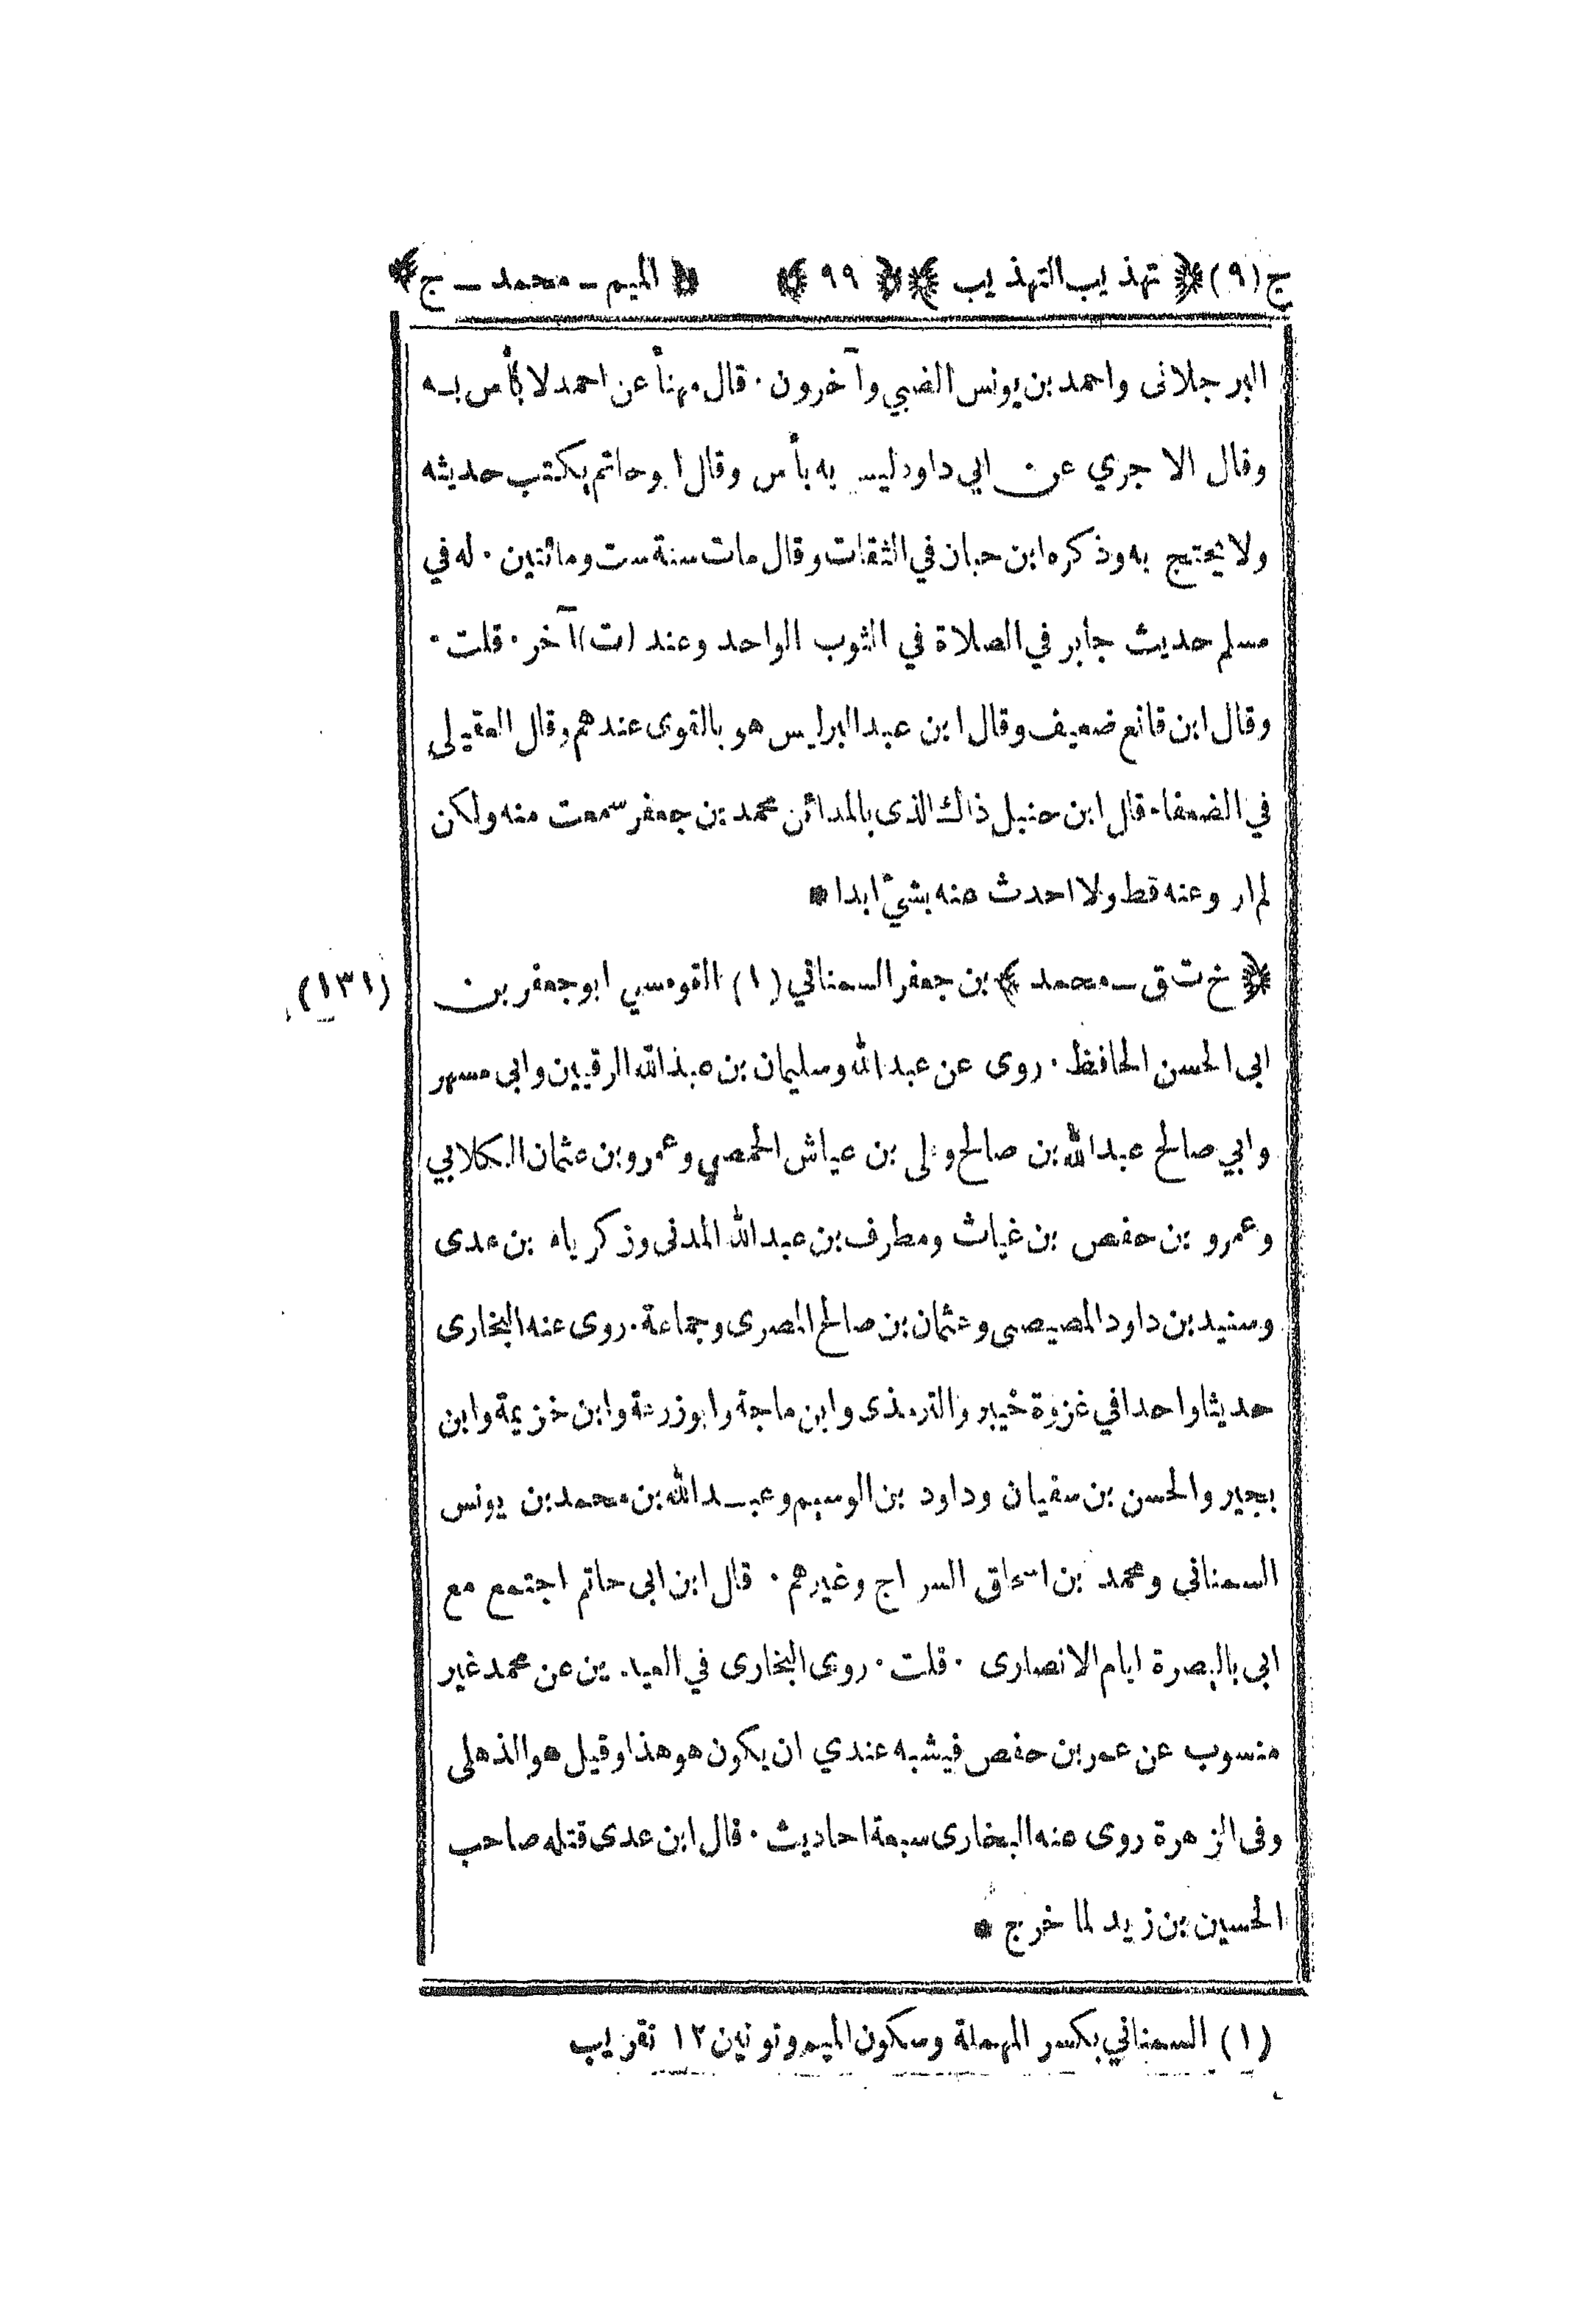 ج (٩) ﴿ تهذيب التهذيب ﴾ ﴿ ٩٩ ﴾ ﴿ الميم - محمد - ج ﴾
البرجلانى واحمد بن يونس الضبي وآخرون · قال مهنأ عن احمد لا بأس به
وقال الاجري عن ابي داود ليس به بأس وقال ابو حاتم يكتب حديثه
ولا يحتج به وذكره ابن حبان في الثقات وقال مات سنة ست ومائتين · له في
مسلم حديث جابر في الصلاة في الثوب الواحد وعند (ت) آخر · قلت ·
وقال ابن قانع ضعيف وقال ابن عبد البر ليس هو بالقوى عندهم وقال العقيلي
في الضعفاء قال ابن حنبل ذاك الذى بالمدائن محمد بن جعفر سمعت منه ولكن
لم ارو عنه قط ولا احدث عنه بشيء ابدا *
﴿ خ ت ق - محمد ﴾ بن جعفر السمناني (١) القومسي ابو جعفر بن
(١٣١)
ابى الحسن الحافظ · روى عن عبد الله وسليمان بن عبد الله الرقيين وابى مسهر
وابي صالح عبد الله بن صالح وعلى بن عياش الحمصي وعمرو بن عثمان الكلابي
وعمرو بن حفص بن غياث ومطرف بن عبد الله المدنى وزكرياء بن عدى
وسنيد بن داود المصيصى وعثمان بن صالح المصرى وجماعة · روى عنه البخارى
حديثا واحدا في غزوة خيبر والترمذى وابن ماجة وابو زرعة وابن خزيمة وابن
بجير والحسن بن سفيان وداود بن الوسيم وعبد الله بن محمد بن يونس
السمناني ومحمد بن اسحاق السراج وغيرهم · قال ابن ابى حاتم اجتمع مع
ابى بالبصرة ايام الانصارى · قلت · روى البخارى في العيدين عن محمد غير
منسوب عن عمر بن حفص فيشبه عندي ان يكون هو هذا وقيل هو الذهلى
وفى الزهرة روى عنه البخارى سبعة احاديث · قال ابن عدى قتله صاحب
الحسين بن زيد لما خرج *
(١) السمناني بكسر المهملة وسكون الميم ونونين ١٢ تقريب